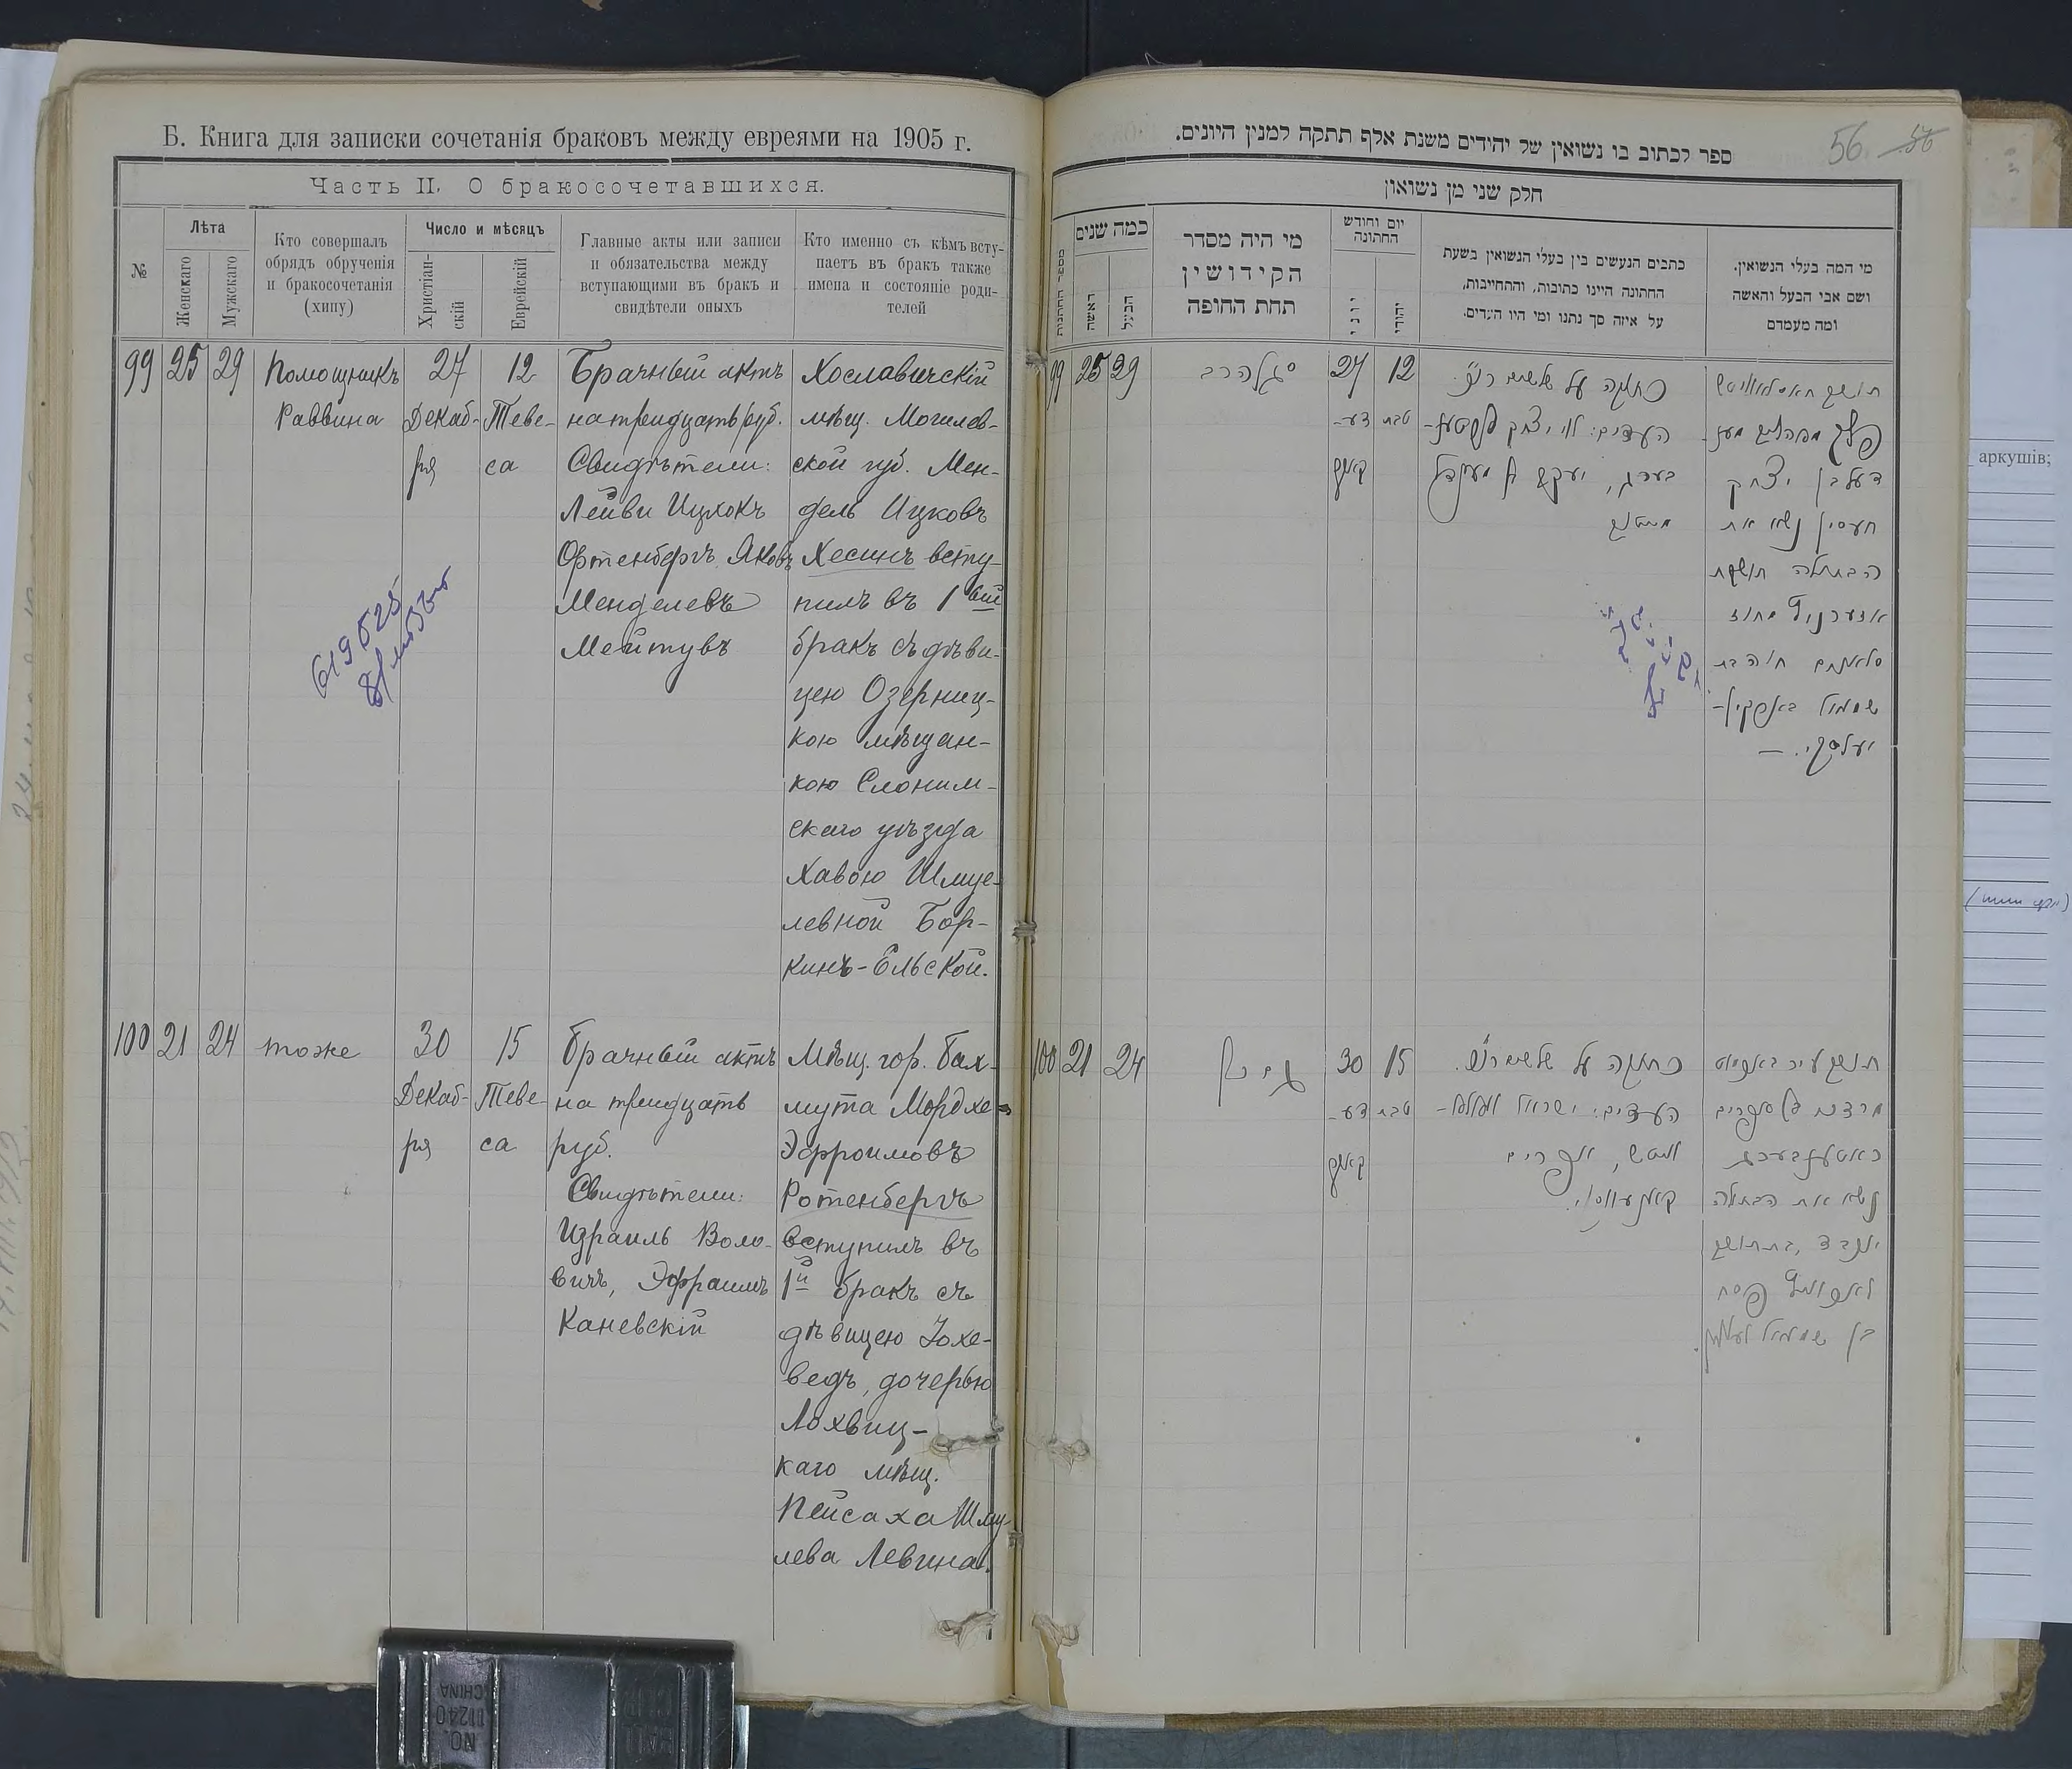 Б. Книга для записки сочетанія браковъ между евреями на 1905 г.
Часть II. О бракосочетавшихся.
№
Лѣта
Женскаго
Мужскаго
Кто совершалъ
обрядъ обрученія
и бракосочетанія
(хипу)
Число и мѣсяцъ
Христіан-
скій
Еврейскій
Главные акты или записи
и обязательства между
вступающими въ бракъ и
свидѣтели оныхъ
Кто именно съ кѣмъ всту-
паетъ въ бракъ также
имена и состояніе роди-
телей
99
25
29
Помощникъ
Раввина
27
Декаб-
ря
12
Теве-
са
Брачный актъ
на тридцать руб.
Свидѣтели:
Лейви Ицхокъ
Ортенбергъ, Яковъ
Менделевъ
Мейтувъ
Хославичскій
мѣщ. Могилев-
ской губ. Мен-
дель Ицковъ
Хесинъ всту-
пилъ въ 1ый
бракъ съ дѣви-
цею Озерниц-
кою мѣщан-
кою Слоним-
скаго уѣзда
Хавою Шмуе-
левной Бор-
кинъ-Ельской.
100
21
24
тоже
30
Декаб-
ря
15
Теве-
са
Брачный актъ
на тридцать
руб.
Свидѣтели:
Израиль Воло-
вичъ, Эфраимъ
Каневскій
Мѣщ. гор. Бах-
мута Мордхе-
Эфроимовъ
Ротенбергъ
вступилъ въ
1й бракъ съ
дѣвицею Іохе-
ведъ, дочерью
Лохвиц-
каго мѣщ.
Пейсаха Шму-
лева Левина.
ספר לכתוב בו נשואין של יהודים משנת אלף תתקה למנין היונים.
56
56
חלק שני מן נשואין
מספר החתונות
כמה שנים
האשה
הבעל
מי היה מסדר
הקידושין
תחת החופה
יום וחודש
החתונה
יוני
יהודי
כתבים הנעשים בין בעלי הנשואין בשעת
החתונה היינו כתובות, והתחייבות,
על איזה סך נתנו ומי היו העדים.
מי המה בעלי הנשואין.
ושם אבי הבעל והאשה
ומה מעמדם
99
25
29
סגן הרב
27
דע-
קאבר
12
טבת
כתובה על שלשים רו"כ.
העדים: לוי יצחק
בערג, יעקב בן מענדל
פלך מאהליב מענ-
דעל בן יצחק
חעסין נשא את
הבתולה תושבת
מחוז
סלאנים חוה בת
שמואל
100
21
24
גם כן
30
דע-
קאבר
15
טבת
כתובה על שלשים רו"כ.
העדים: ישראל
אפרים
תושב עיר באחמוט
מרדכי בן אפרים
ראטענבערג
נשא את הבתולה
יוכבד, בת תושב
פסח
בן שמואל לעווין.
аркушів;
NO.
11240
CHINA